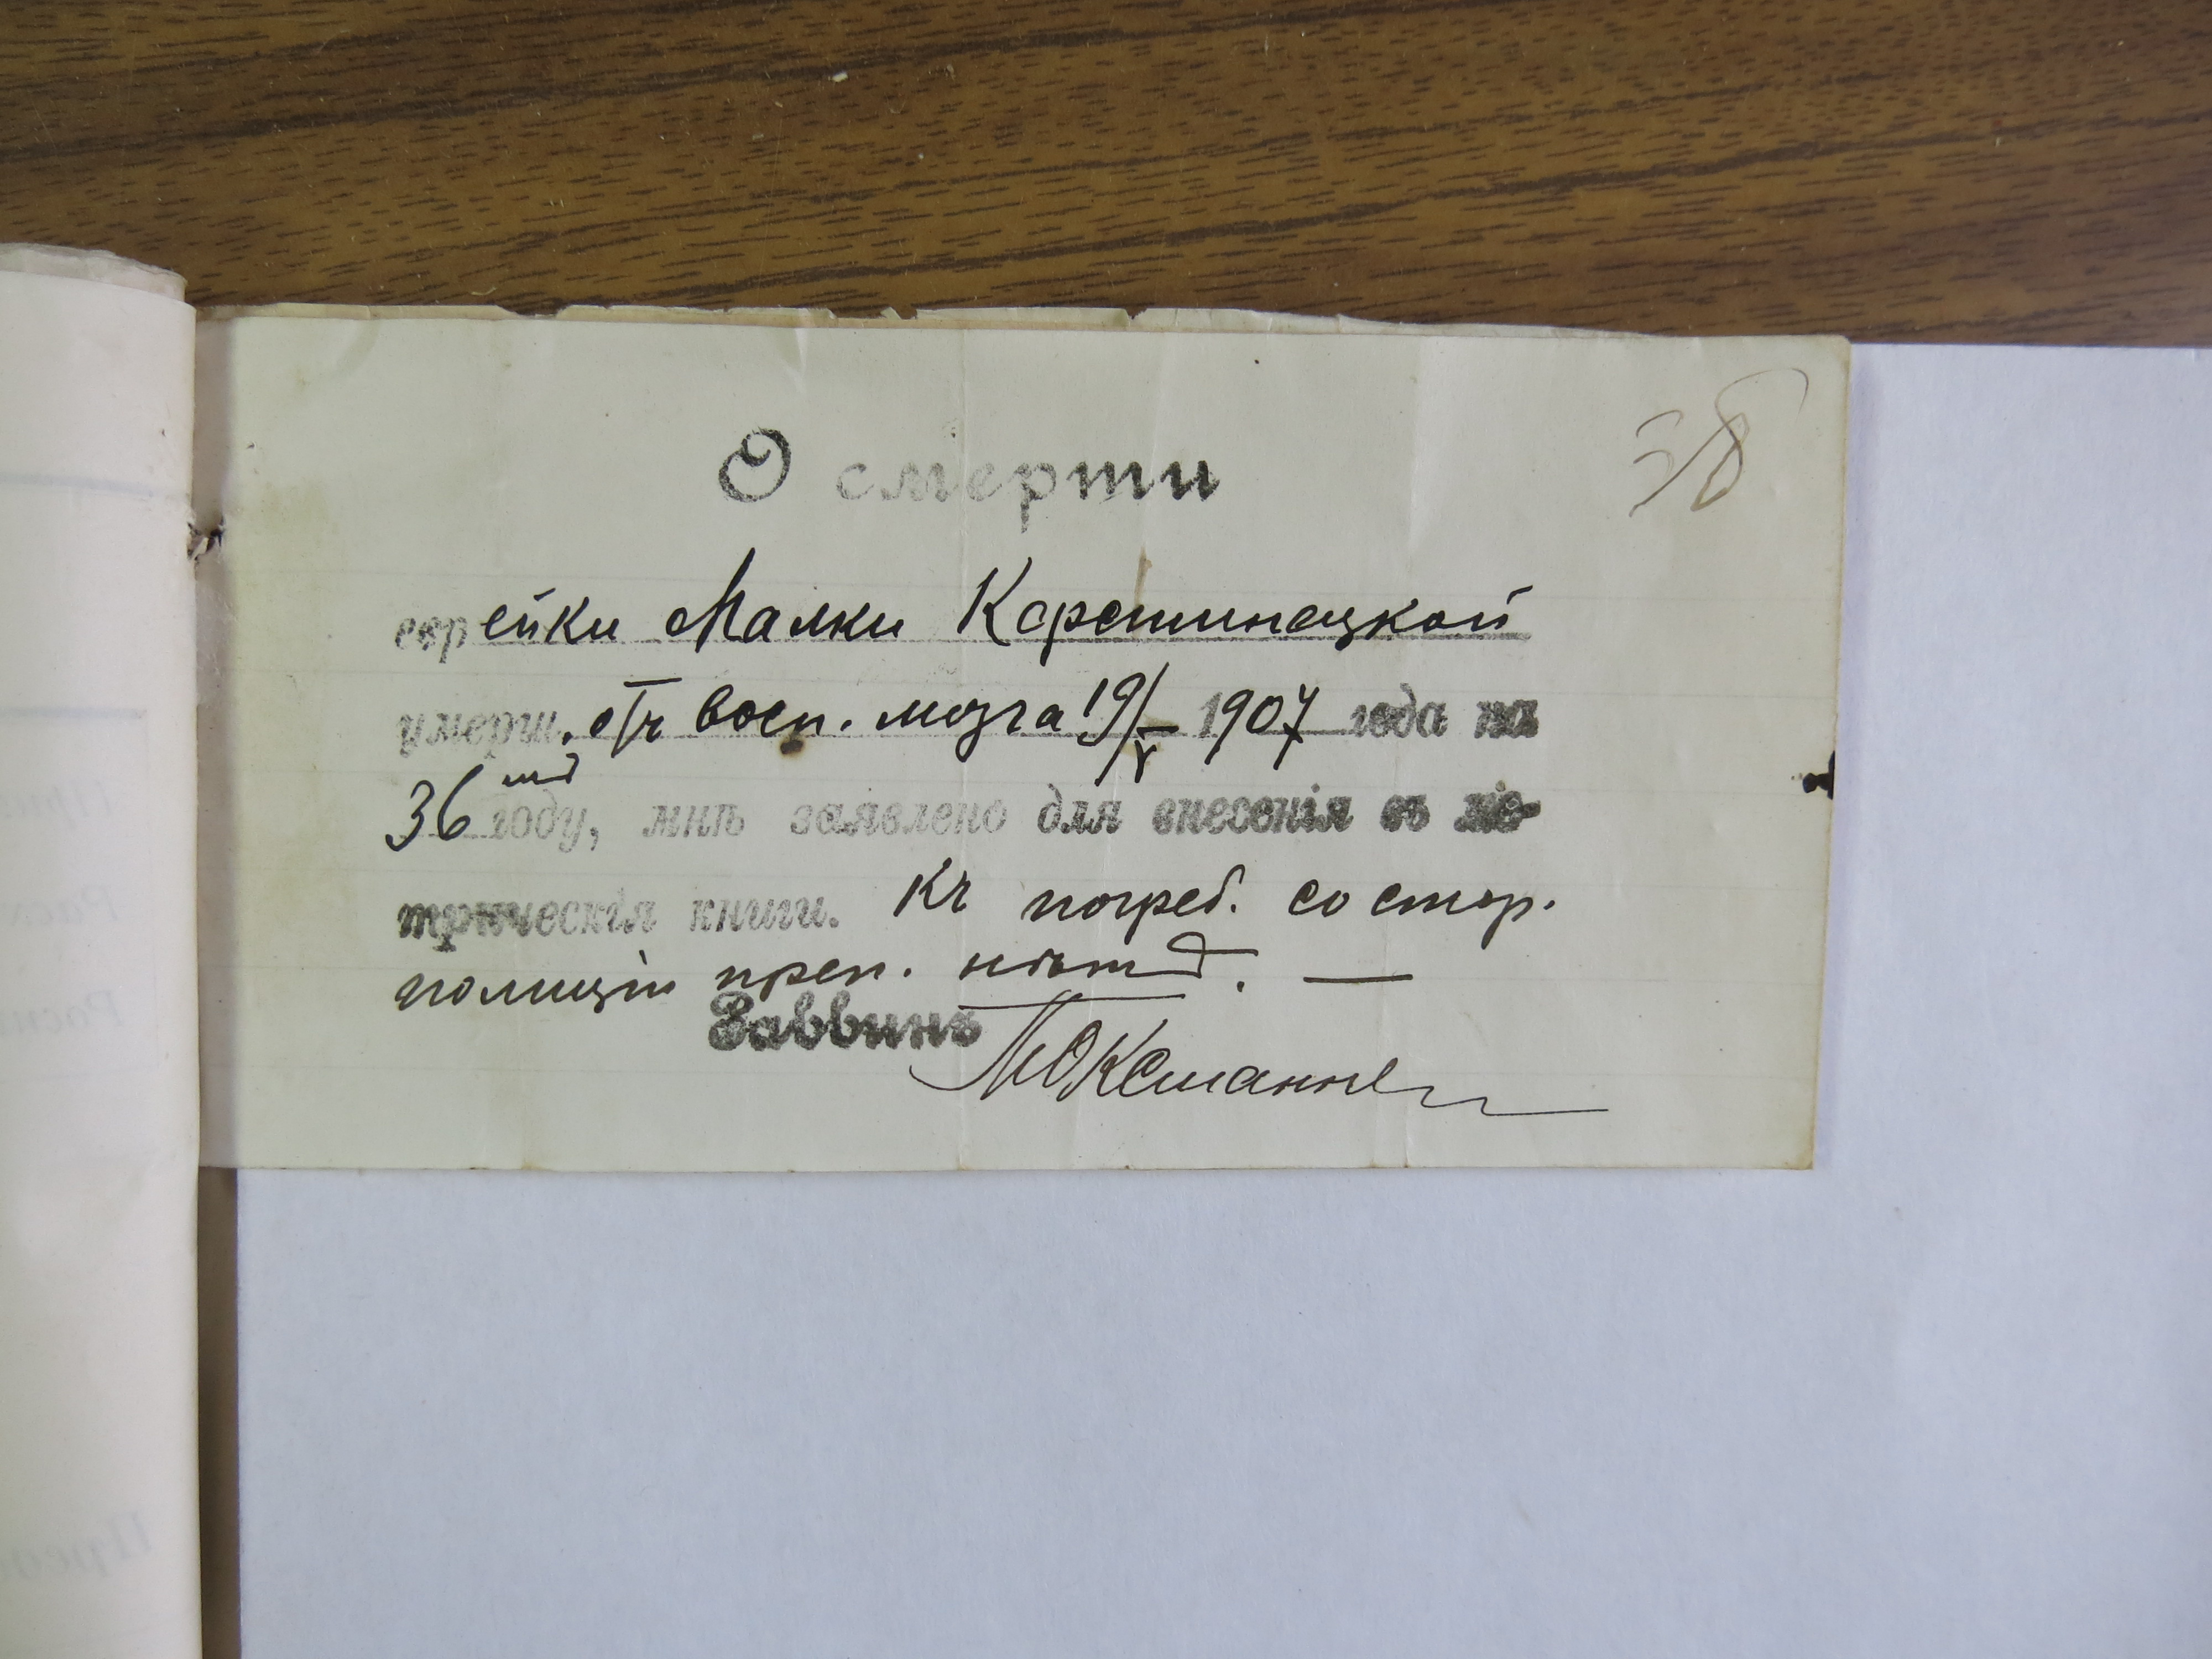 38
О смерти
еврейки Малки Карстинецкой
умерш. отъ восп. мозга 19/V 1907 года на
36 году, мнѣ заявлено для внесенія въ ме-
трическія книги. Къ погреб. со стор.
полиціи преп. нѣтъ. —
Раввинъ